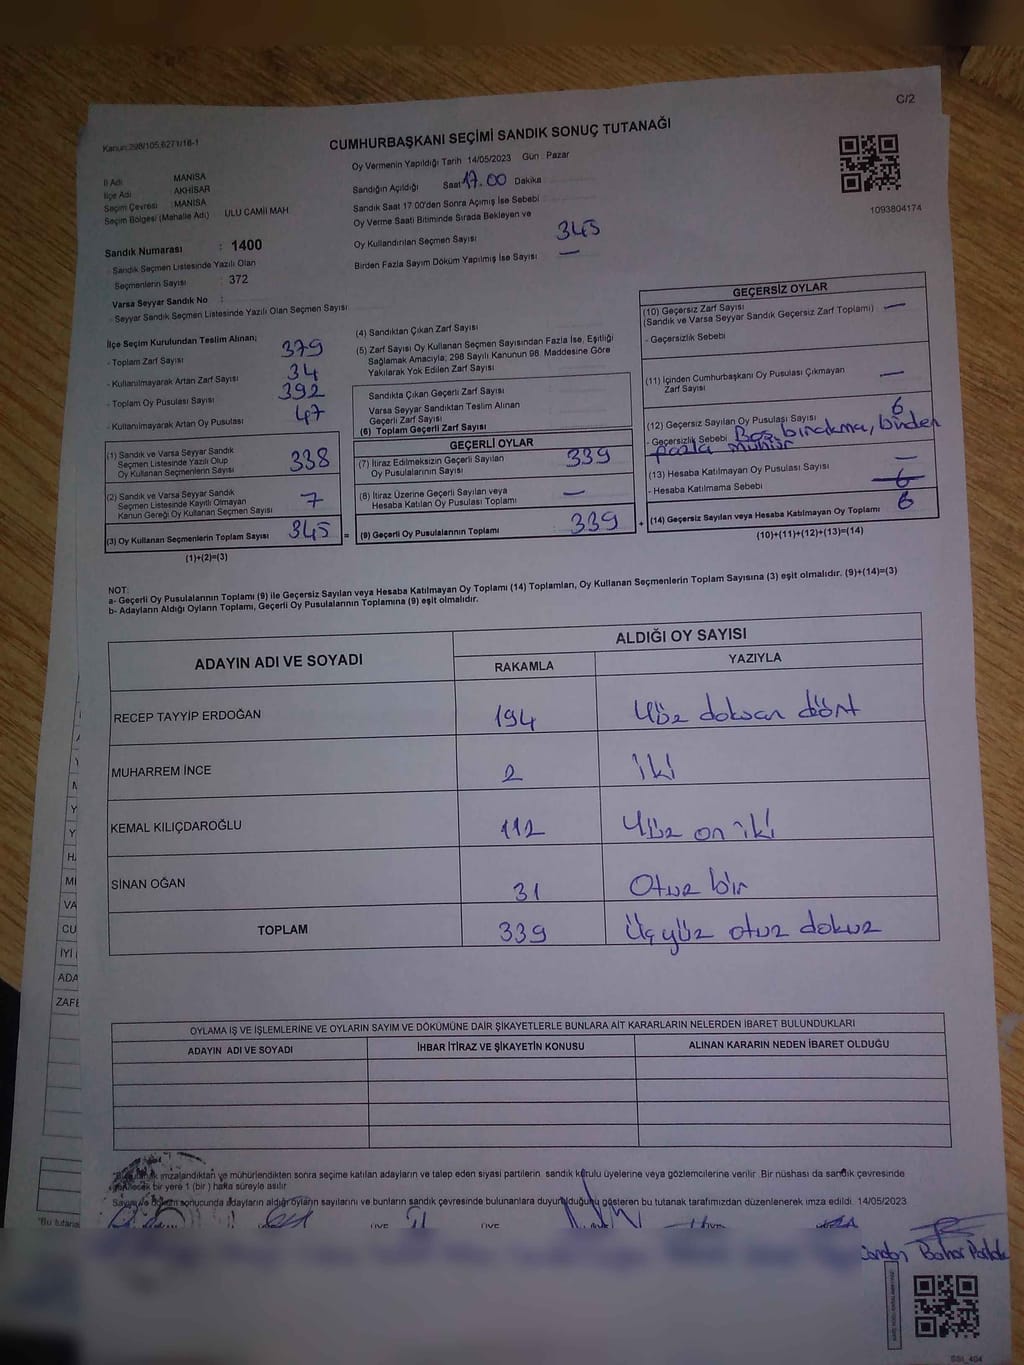 C/2
Kanun:298/105,6271/18-1
CUMHURBAŞKANI SEÇİMİ SANDIK SONUÇ TUTANAĞI
İl Adı MANİSA
İlçe Adı AKHİSAR
Seçim Çevresi : MANİSA
Seçim Bölgesi (Mahalle Adı) ULU CAMİİ MAH
Oy Vermenin Yapıldığı Tarih 14/05/2023 Gün : Pazar
Sandığın Açıldığı Saat 17.00 Dakika
Sandık Saat 17:00'den Sonra Açımış İse Sebebi
Oy Verme Saati Bitiminde Sırada Bekleyen ve
Oy Kullandırılan Seçmen Sayısı 345
Birden Fazla Sayım Döküm Yapılmış İse Sayısı —
1093804174
Sandık Numarası : 1400
- Sandık Seçmen Listesinde Yazılı Olan
Seçmenlerin Sayısı : 372
Varsa Seyyar Sandık No :
- Seyyar Sandık Seçmen Listesinde Yazılı Olan Seçmen Sayısı
İlçe Seçim Kurulundan Teslim Alınan;
- Toplam Zarf Sayısı 379
- Kullanılmayarak Artan Zarf Sayısı 34
- Toplam Oy Pusulası Sayısı 392
- Kullanılmayarak Artan Oy Pusulası 47
(1) Sandık ve Varsa Seyyar Sandık
Seçmen Listesinde Yazılı Olup
Oy Kullanan Seçmenlerin Sayısı 338
(2) Sandık ve Varsa Seyyar Sandık
Seçmen Listesinde Kayıtlı Olmayan
Kanun Gereği Oy Kullanan Seçmen Sayısı 7
(3) Oy Kullanan Seçmenlerin Toplam Sayısı 345 =
(1)+(2)=(3)
(4) Sandıktan Çıkan Zarf Sayısı
(5) Zarf Sayısı Oy Kullanan Seçmen Sayısından Fazla İse, Eşitliği
Sağlamak Amacıyla; 298 Sayılı Kanunun 98. Maddesine Göre
Yakılarak Yok Edilen Zarf Sayısı
Sandıkta Çıkan Geçerli Zarf Sayısı
Varsa Seyyar Sandıktan Teslim Alınan
Geçerli Zarf Sayısı
(6) Toplam Geçerli Zarf Sayısı
GEÇERLİ OYLAR
(7) İtiraz Edilmeksizin Geçerli Sayılan
Oy Pusulalarının Sayısı 339
(8) İtiraz Üzerine Geçerli Sayılan veya
Hesaba Katılan Oy Pusulası Toplamı —
(9) Geçerli Oy Pusulalarının Toplamı 339 +
GEÇERSİZ OYLAR
(10) Geçersiz Zarf Sayısı —
(Sandık ve Varsa Seyyar Sandık Geçersiz Zarf Toplamı)
- Geçersizlik Sebebi
(11) İçinden Cumhurbaşkanı Oy Pusulası Çıkmayan
Zarf Sayısı —
(12) Geçersiz Sayılan Oy Pusulası Sayısı 6
- Geçersizlik Sebebi Boş bırakma, birden
fazla mühür
(13) Hesaba Katılmayan Oy Pusulası Sayısı —
- Hesaba Katılmama Sebebi 6
(14) Geçersiz Sayılan veya Hesaba Katılmayan Oy Toplamı 6
(10)+(11)+(12)+(13)=(14)
NOT:
a- Geçerli Oy Pusulalarının Toplamı (9) ile Geçersiz Sayılan veya Hesaba Katılmayan Oy Toplamı (14) Toplamları, Oy Kullanan Seçmenlerin Toplam Sayısına (3) eşit olmalıdır. (9)+(14)=(3)
b- Adayların Aldığı Oyların Toplamı, Geçerli Oy Pusulalarının Toplamına (9) eşit olmalıdır.
ADAYIN ADI VE SOYADI ALDIĞI OY SAYISI
RAKAMLA YAZIYLA
RECEP TAYYİP ERDOĞAN 194 Yüz doksan dört
MUHARREM İNCE 2 iki
KEMAL KILIÇDAROĞLU 112 Yüz on iki
SİNAN OĞAN 31 Otuz bir
TOPLAM 339 Üçyüz otuz dokuz
CU
İYİ
ADA
ZAFE
OYLAMA İŞ VE İŞLEMLERİNE VE OYLARIN SAYIM VE DÖKÜMÜNE DAİR ŞİKAYETLERLE BUNLARA AİT KARARLARIN NELERDEN İBARET BULUNDUKLARI
ADAYIN ADI VE SOYADI İHBAR İTİRAZ VE ŞİKAYETİN KONUSU ALINAN KARARIN NEDEN İBARET OLDUĞU
imzalandıktan ve mühürlendikten sonra seçime katılan adayların ve talep eden siyasi partilerin sandık kurulu üyelerine veya gözlemcilerine verilir. Bir nüshası da sandık çevresinde
bir yere 1 (bir) hafta süreyle asılır.
sonucunda adayların aldığı oyların sayılarını ve bunların sandık çevresinde bulunanlara duyurulduğunu gösteren bu tutanak tarafımızdan düzenlenerek imza edildi. 14/05/2023
"Bu tutana
Bahar
SSI_404